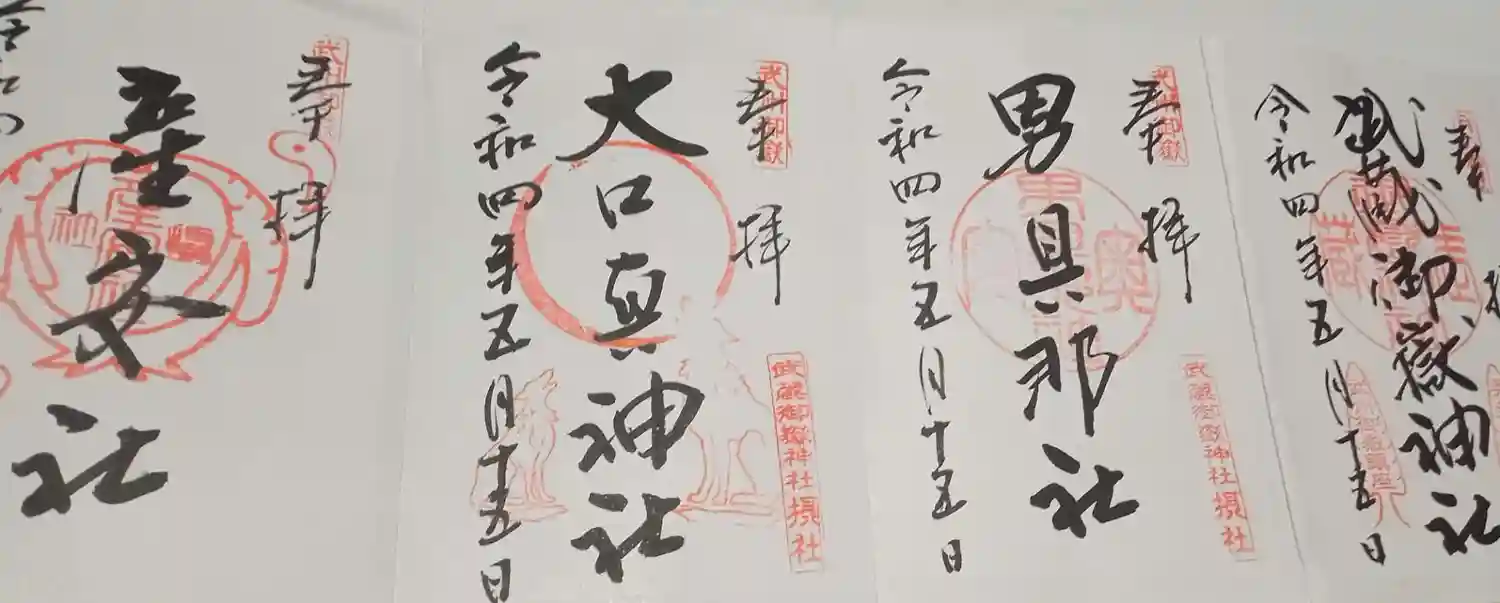 奉
武蔵御嶽神社
令和四年五月十五日
武州御嶽
奉拝
男具那社
武蔵御嶽神社 摂社
令和四年五月十五日
武州御嶽
奉拝
大口真神社
武蔵御嶽神社 摂社
令和四年五月十五日
奉拝
産安社
令和四